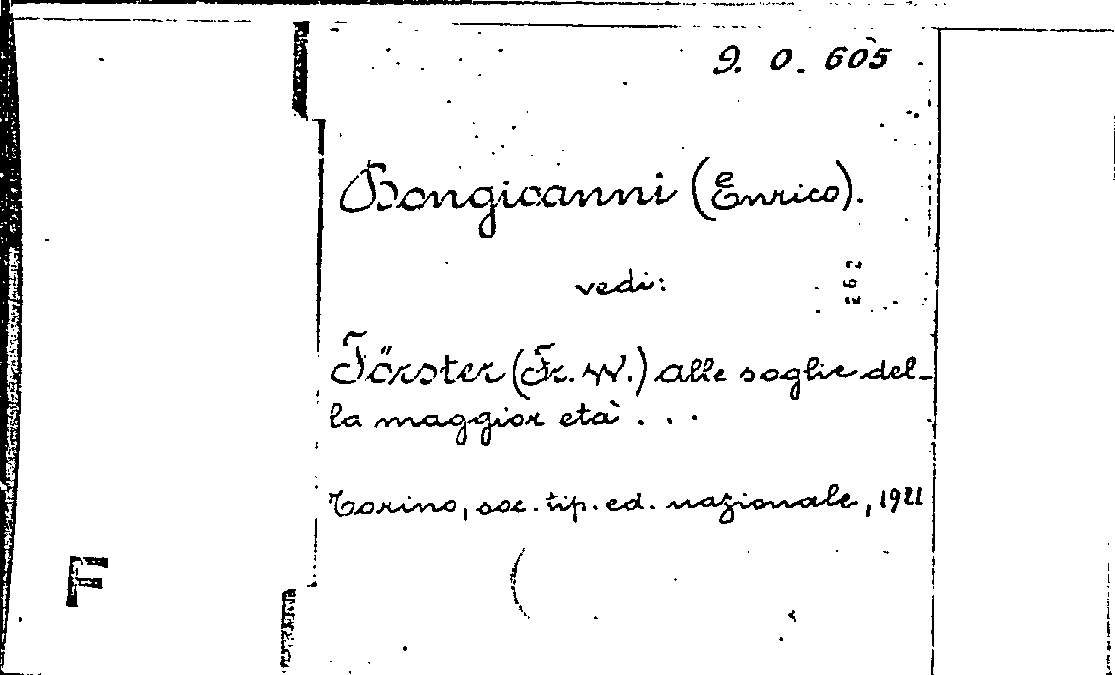 9. 0. 605
Bongioanni (Enrico).
vedi:
262
Förster (Fr. W.) alle soglie del-
la maggior età . . .
Torino, soc. tip. ed. nazionale, 1921
F